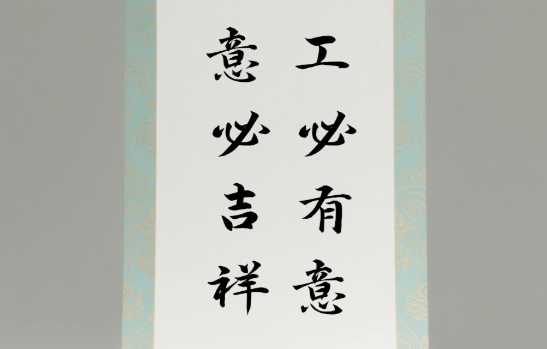 工必有意
意必吉祥